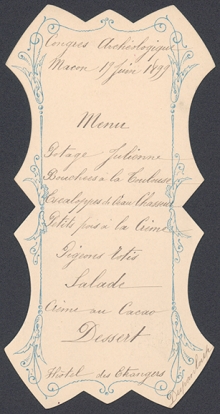 Congres Archéologique
Macon 19 Juin 1899
Menu
Potage Julienne
Bouchees à la Toulouse
Escaloppes de Veau Chasseur
Petits pois à la Crème
Pigeons rotis
Salade
Crème au Cacao
Dessert
Hôtel des Etrangers